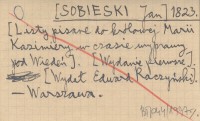 [SOBIESKI Jan] 1823.
[Listy pisane do królowej Marii
Kazimiery w czasie wyprawy
pod Wiedeń]. [Wydanie pierwsze].
[Wydał Edward Raczyński].
— Warszawa.